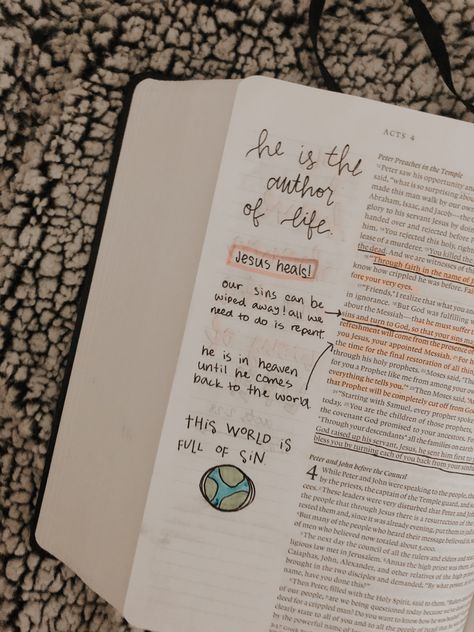 he is the
author
of life.
Jesus heals!
our sins can be
wiped away! all we
need to do is repent.
he is in heaven
until he comes
back to the world.
THIS WORLD IS
FULL OF SIN
ACTS 4
Peter Preaches in the Temple
Peter saw his opportunity
said, "what is so surprising about
made this man walk by our own
Abraham, Isaac, and Jacob—the
glory to his servant Jesus by
handed over and rejected before
him. You rejected this holy, right
lease of a murderer. You killed the
the dead. And we are witnesses of
"Through faith in the name of
know how crippled he was before.
fore your very eyes.
"Friends," I realize that you and
in ignorance. But God was fulfilling
about the Messiah—that he must suffer
sins and turn to God, so that your sins may
refreshment will come from the presence
you Jesus, your appointed Messiah. For
the time for the final restoration of all things
through his holy prophets. Moses said,
for you a Prophet like me from among your
everything he tells you.' Then Moses said,
that Prophet will be completely cut off from
"Starting with Samuel, every prophet spoke
today. You are the children of those prophets,
the covenant God promised to your ancestors.
'Through your descendants all the families on earth
God raised up his servant, Jesus, he sent him first
bless you by turning each of you back from your
Peter and John before the Council
4 While Peter and John were speaking to the people,
by the priests, the captain of the Temple guard, and
cees. These leaders were very disturbed that Peter and John
the people that through Jesus there is a resurrection of the
rested them and, since it was already evening, put them in
But many of the people who heard their message believed it,
of men who believed now totaled about 5,000.
The next day the council of all the rulers and elders and
ligious law met in Jerusalem. Annas the high priest was there,
Caiaphas, John, Alexander, and other relatives of the high priest
brought in the two disciples and demanded, "By what power,
name, have you done this?"
Then Peter, filled with the Holy Spirit, said to them, "Rulers
of our people, are we being questioned today because we've
for a crippled man? Do you want to know how he was
clearly state to all of you and to all the people of
by the powerful name of